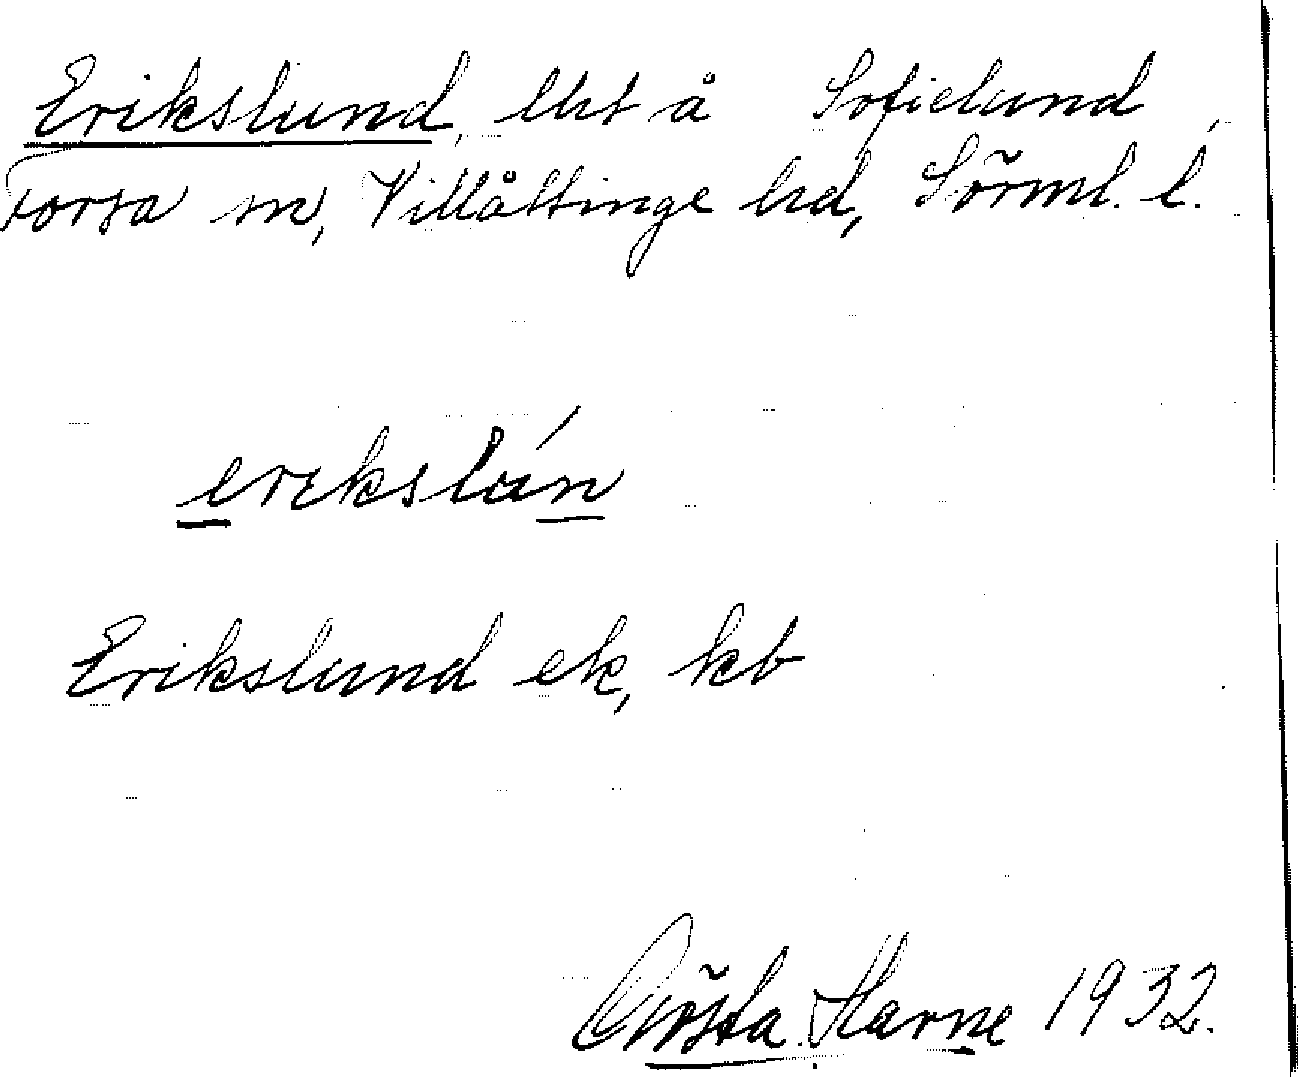 Erikslund, lht å Sofielund,
Forsa sn, Villåttinge hd, Sörml. l.
erikslún
Erikslund ek, kb
Gösta Harne 1932.